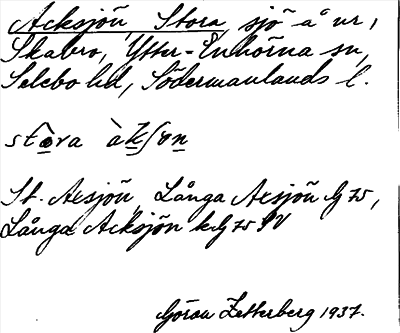 Acksjön, Stora, sjö å ur,
Skabro, Ytter-Enhörna sn,
Selebo hd, Södermanlands l.
stòra àkʃön
St. Axsjön, Långa Axsjön G 75,
Långa Acksjön k G 75 SV
Göran Zetterberg 1937.